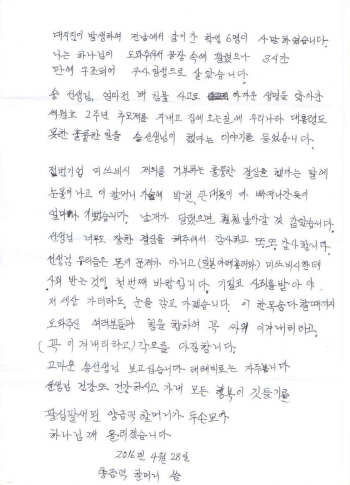 대지진이 발생하여 전남에서 같이 간 학생 6명이 사망하였습니다.
나는 하나님이 도와주셔서 공장 속에 깔렸으나 3시간
만에 구조되어 구사일생으로 살았습니다.
송 선생님, 얼마전 배 침몰 사고로 아까운 생명을 앗아간
세월호 2주년 추모제를 지내고 집에 오는길에 우리나라 대통령도
못한 훌륭한 일을 송선생님이 했다는 이야기를 들었습니다.
전범기업 미쓰비시 제의를 거부하는 훌륭한 결심을 했다는 말에
눈물이 나고 이 할머니 가슴에 박힌 큰 대못이 다 빠져나간듯이
기뻤습니다. 날개가 달렸으면 훨훨 날아갈 것 같았습니다.
선생님 너무도 장한 결심을 해주셔서 감사하고 또 또 감사합니다.
선생님 우리들은 돈이 문제가 아니고 (일본 아베총리와) 미쓰비시한테
사죄 받는 것이 첫번째 바람입니다. 기필코 사죄를 받아야
저세상 가더라도 눈을 감고 가겠습니다. 이 한목숨 다할때까지
도와주신 여러분들과 힘을 합하여 꼭 싸워 이겨내리라고,
(꼭 이겨내리라고) 각오를 다짐합니다.
고마운 송선생님 보고싶습니다 자주봅니다
선생님 건강또 건강하시고 가내 모든 행복이 깃들기를
팔십팔세된 양금덕 할머니가 두손모아
하나님께 올리겠습니다
2016년 4월 28일
양금덕 할머니 씀